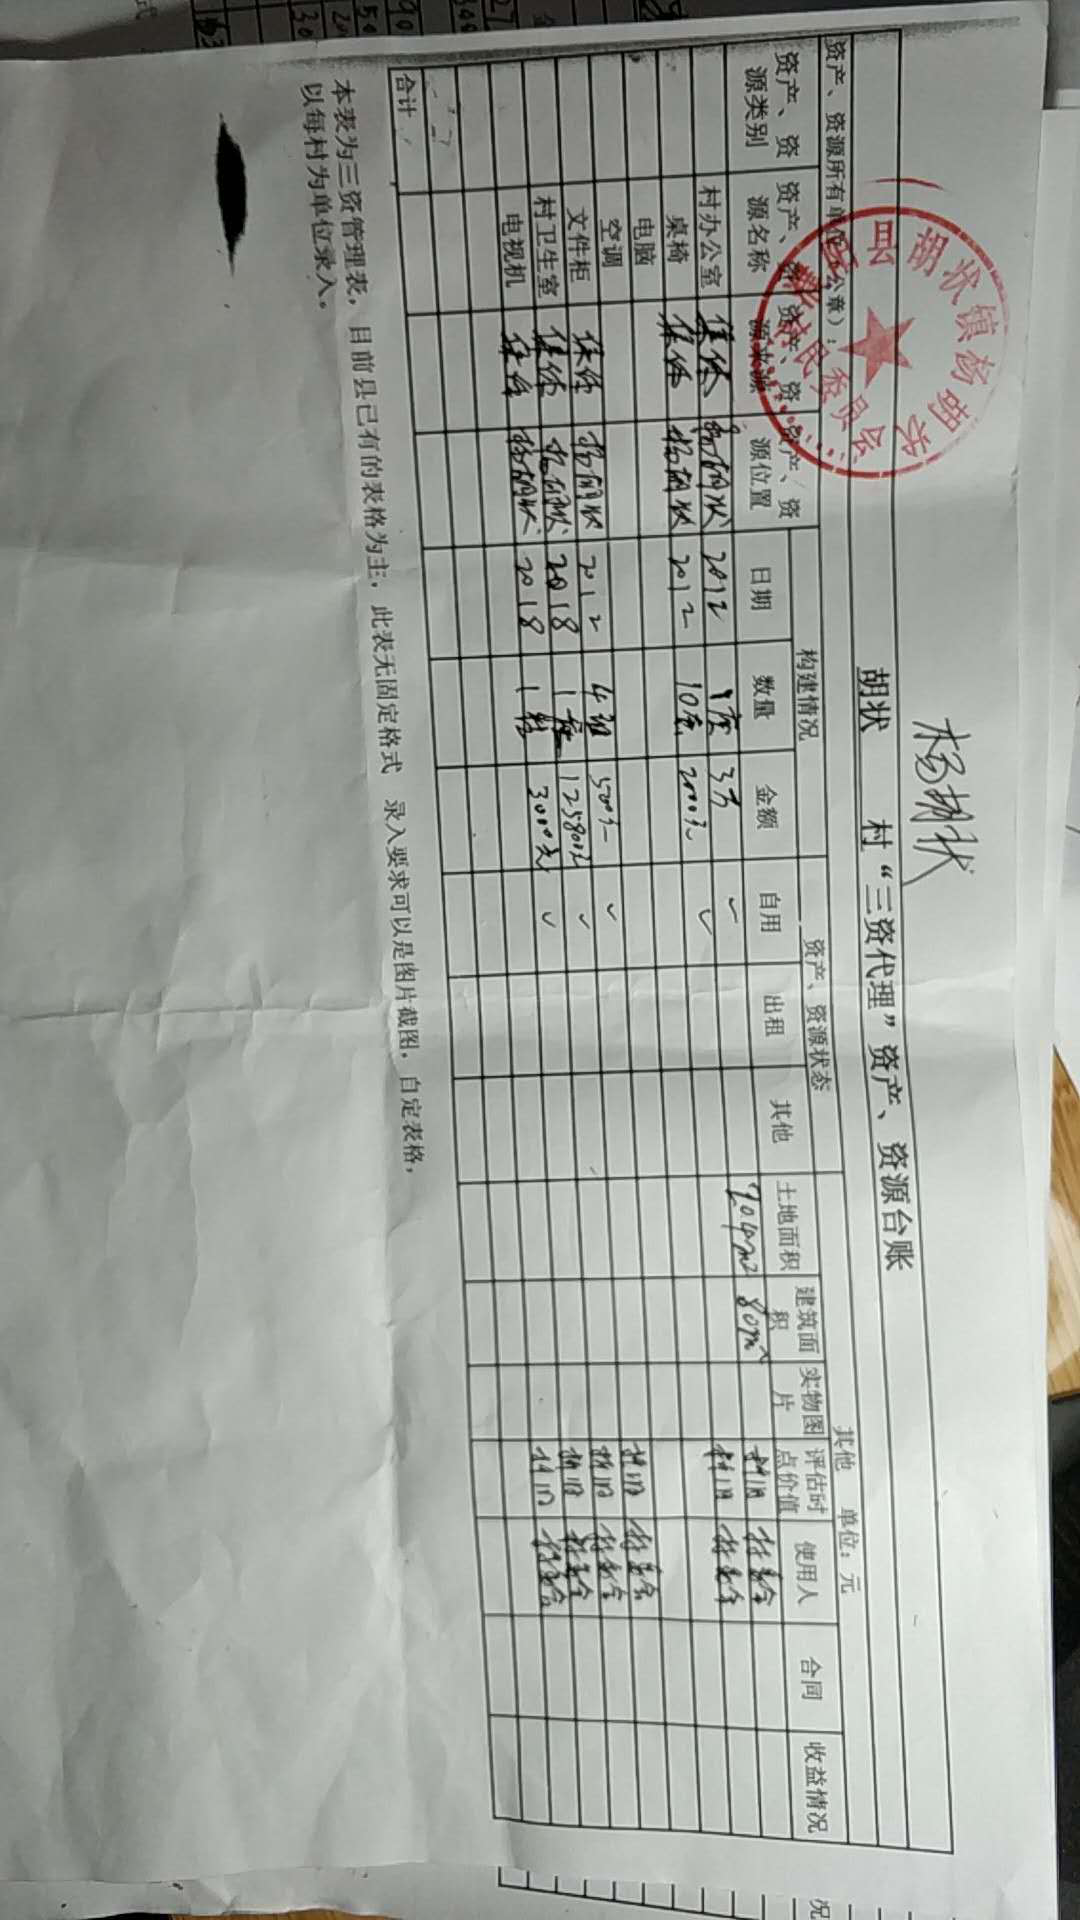 杨胡状
胡状 村“三资代理”资产、资源台账
资产、资源所有单位（公章）： 单位：元
胡状镇杨胡状
村民委员会
资产、资源类别 资产、资源名称 资产、资源来源 资产、资源位置 构建情况 资产、资源状态 其他
日期 数量 金额 自用 出租 其他 土地面积 建筑面积 实物图片 评估时点价值 使用人 合同 收益情况
村办公室 集体 杨胡状 2012 1座 3万 ✓ 204m² 80m² 折旧 村委会
桌椅 集体 杨胡状 2012 10套 2000元 ✓ 折旧 村委会
电脑
空调
文件柜 集体 杨胡状 2012 4组 500元 ✓ 折旧 村委会
村卫生室 集体 杨胡状 2018 1座 125800元 ✓ 折旧 村委会
电视机 集体 杨胡状 2018 1台 3000元 ✓ 折旧 村委会
合计
本表为三资管理表，目前县已有的表格为主，此表无固定格式 录入要求可以是图片截图，自定表格，
以每村为单位录入。